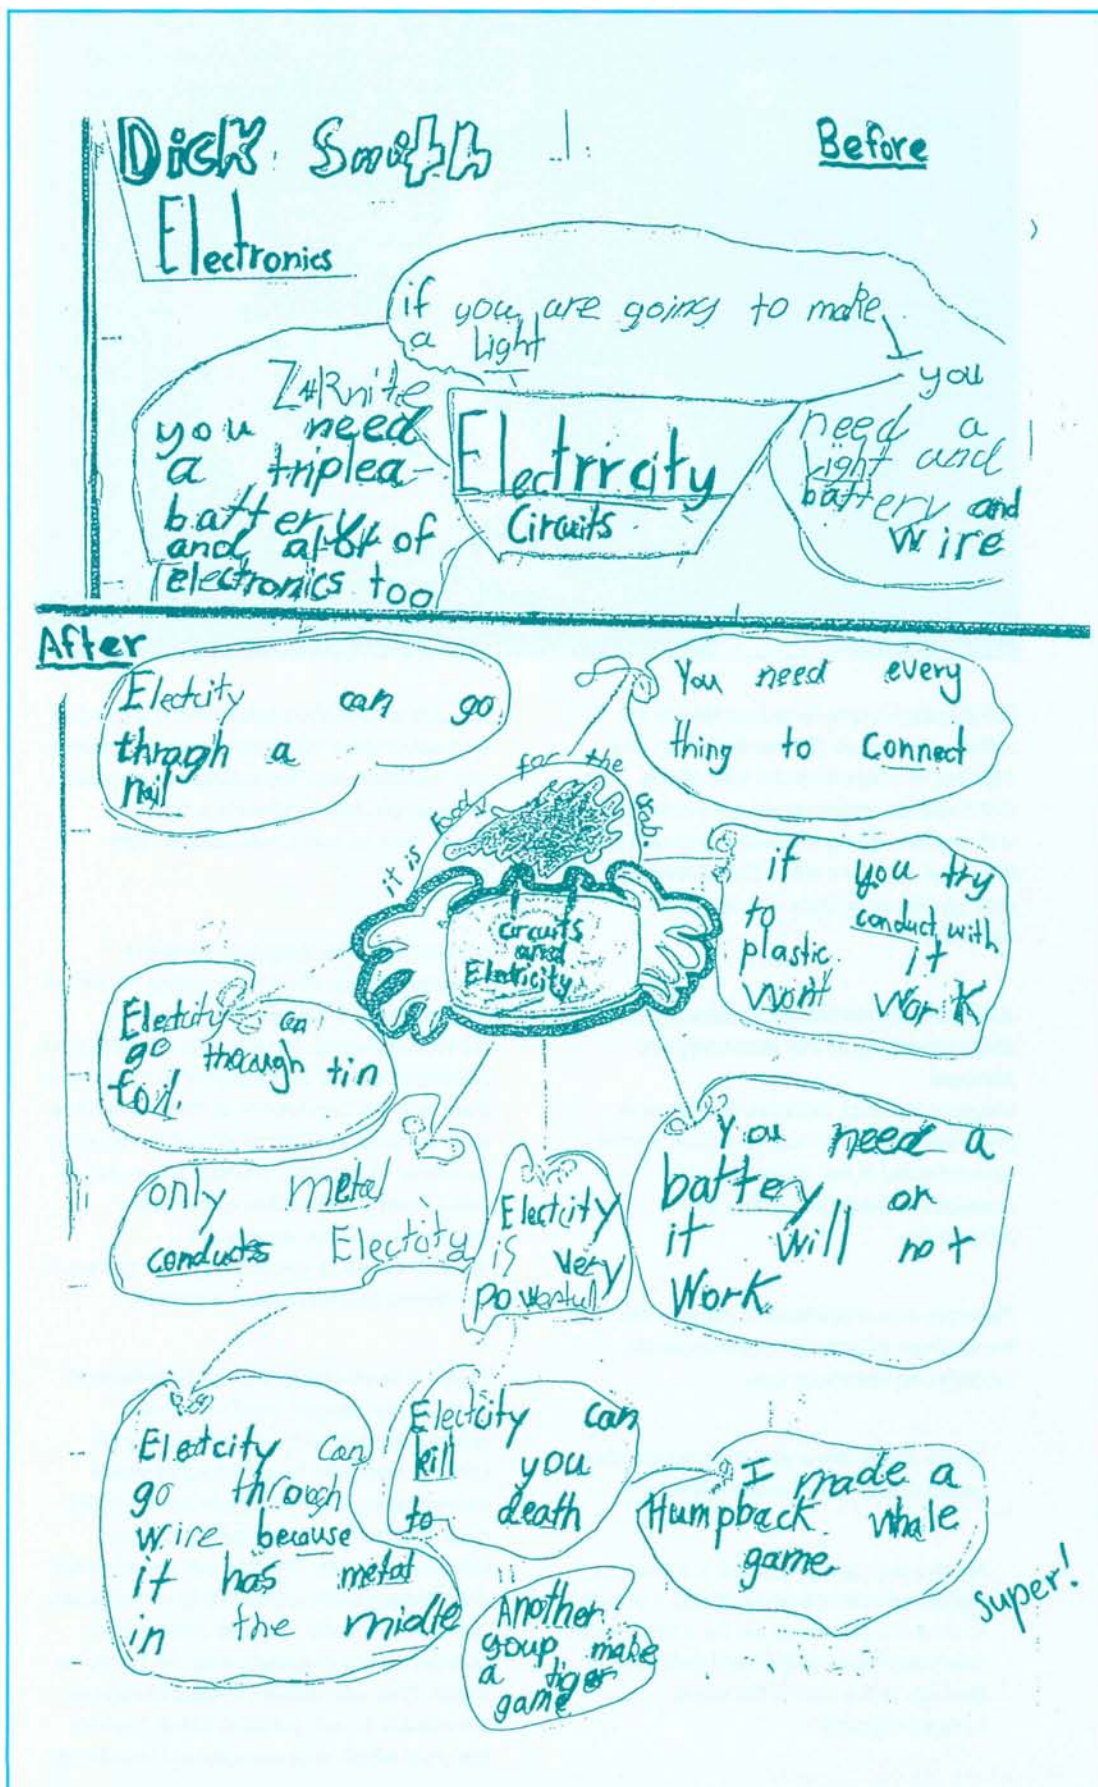 Dick Smith
Electronics
Before
if you are going to make
a Light
you
need a
Light and
battery and
wire
you need
a triplea
battery
and alot of
electronics too
Electrrcity
Circuits
After
Electcity can go
throgh a
nail
You need every
thing to Connect
it is Foody for the crab.
circuits
and
Electricity
if you try
to conduct with
plastic it
wont work
Electcity can
go thoough tin
foil.
only metal
conducts Electcity
Electcity
is very
powerful
You need a
battery or
it will not
Work
Electcity can
go through
wire because
it has metal
in the midle
Electcity can
kill you
to death
I made a
Humpback whale
game
Another
goup make
a tiger
game
super!